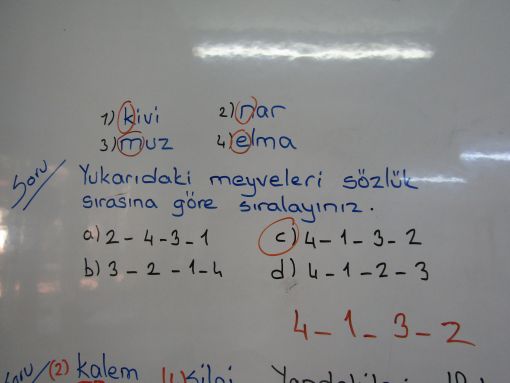 1) kivi 2) nar
3) muz 4) elma
Soru Yukarıdaki meyveleri sözlük
sırasına göre sıralayınız.
a) 2 - 4 - 3 - 1 c) 4 - 1 - 3 - 2
b) 3 - 2 - 1 - 4 d) 4 - 1 - 2 - 3
4 - 1 - 3 - 2
Soru (2) kalem